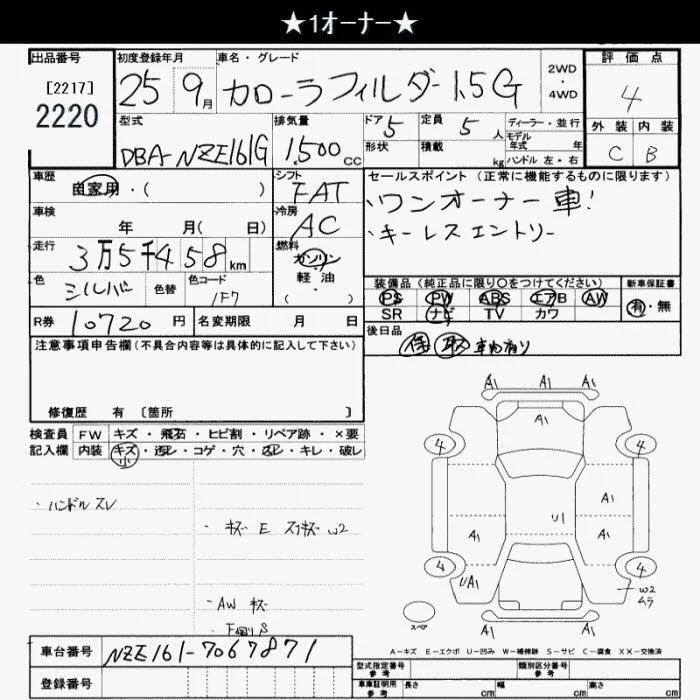 ★1オーナー★
出品番号
[2217]
2220
初度登録年月
25 9月
車名・グレード
カローラフィルダー 1.5G
2WD
・
4WD
評価点
4
外装 内装
C B
型式
DBA-NZE161G
排気量
1,500 cc
ドア 5
形状
定員 5 人
積載 kg
ディーラー・並行
モデル
年式 年
ハンドル 左・右
車歴
自家用・( )
シフト
FAT
車検
年 月( 日)
冷房
AC
走行
3万5千458km
燃料
ガソリン
軽・油
( )
色
シルバ
色替
色コード
1F7
R券 10720 円
名変期限 月 日
セールスポイント (正常に機能するものに限ります)
・ワンオーナー車!
・キーレスエントリー
装備品 (純正品に限り○をつけてください)
PS PW ABS エアB AW
SR ナビ TV カワ
新車保証書
有・無
後日品
保 取 車内有り
注意事項申告欄 (不具合内容等は具体的に記入して下さい)
修復歴 有 [箇所 ]
検査員
記入欄
FW キズ・飛石・ヒビ割・リペア跡・×要
内装 キズ・汚レ・コゲ・穴・凹レ・キレ・破レ
小
・ハンドルスレ
・キズ E スリキズ W2
・AW キズ
・F廻り S
A1 A1 A1
A1
4 4
A1
A1 U1 A1
4 4
UA1
W2
ムラ
A1 A1
スペア
A-キズ E-エクボ U-凹み W-補修跡 S-サビ C-腐食 XX-交換済
車台番号
NZE161-7067871
登録番号
型式指定番号
参考
類別区分番号
参考
車庫証明用
参考
長さ cm 幅 cm 高さ cm